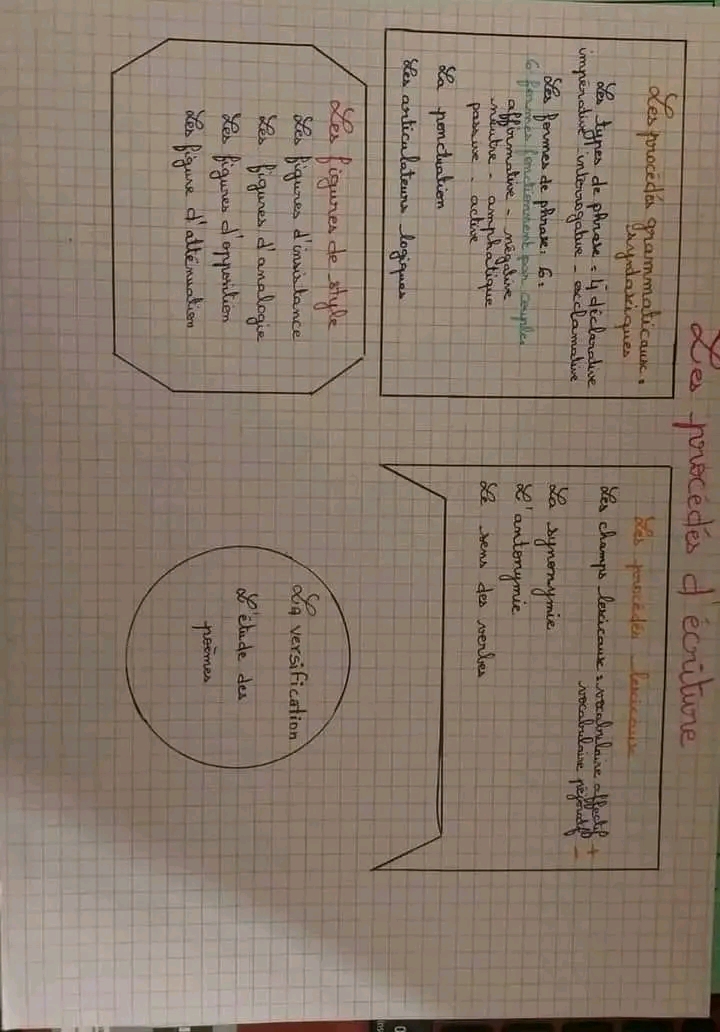 Les procédés d'écriture
Les procédés grammaticaux :
syntaxiques
Les types de phrase = 4 déclarative
impérative interrogative - exclamative
Les formes de phrase : 6 :
6 formes fonctionnent par couple :
affirmative - négative
neutre - amphatique
passive - active
La ponctuation
Les articulateurs logiques
Les procédés lexicaux
Les champs lexicaux : vocabulaire affectif +
vocabulaire péjoratif -
La synonymie
L'antonymie
Le sens des verbes
Les figures de style
Les figures d'insistance
Les figures d'analogie
Les figures d'opposition
Les figure d'atténuation
La versification
L'étude des
poèmes